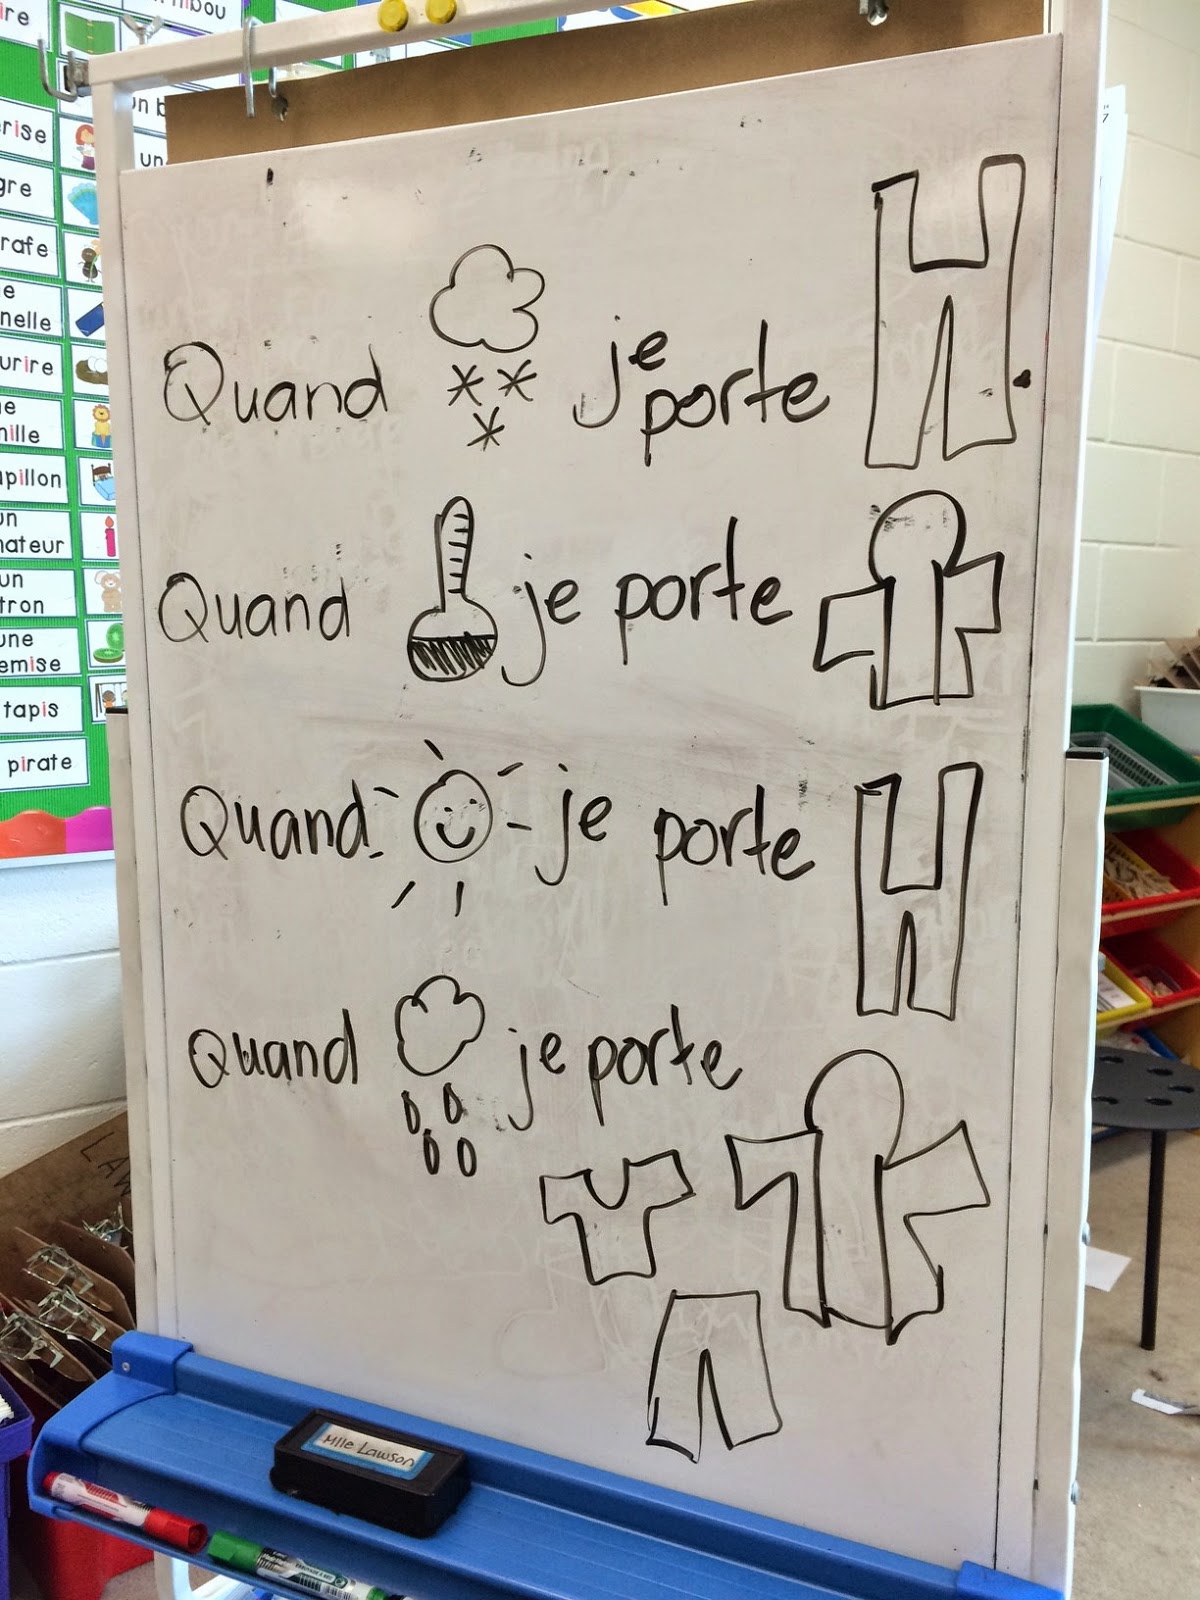 ire
ibou
un b
rise
une
gre
rafe
e
nelle
urire
ne
nille
apillon
un
nateur
un
tron
une
emise
tapis
pirate
Quand je porte .
Quand je porte
Quand je porte
Quand je porte
Mlle Lawson